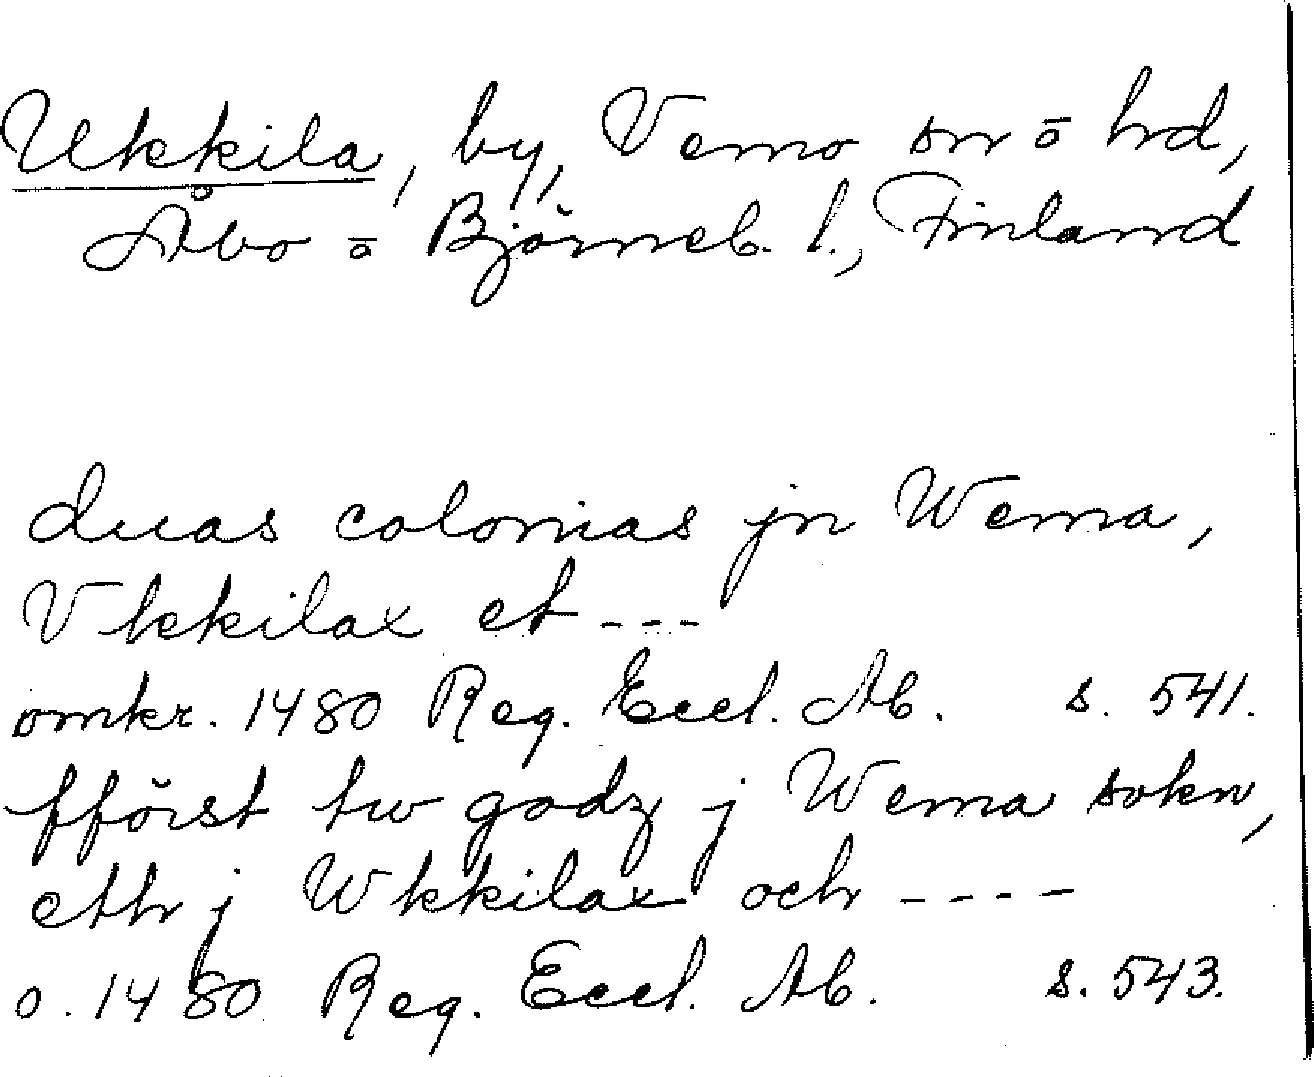 Ukkila, by, Vemo sn ō hd,
Åbo ō Björneb. l., Finland
duas colonias jn Wema,
Vkkilax et ---
omkr. 1480 Reg. Eccl. Ab. s. 541.
fförst tw godz j Wema sokn,
eth j Wkkilax och ----
o. 1480 Reg. Eccl. Ab. s. 543.